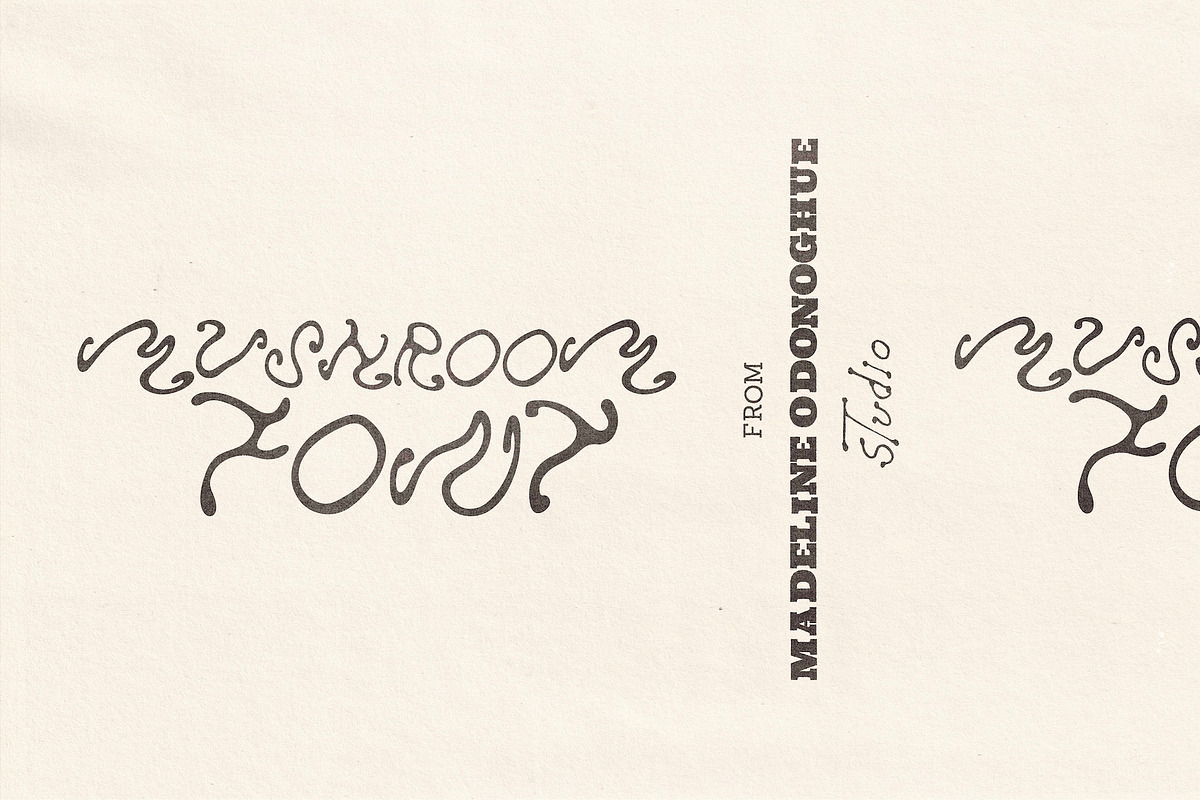 MUSHROOM
FONT
FROM
MADELINE ODONOGHUE
Studio
MUS
FO